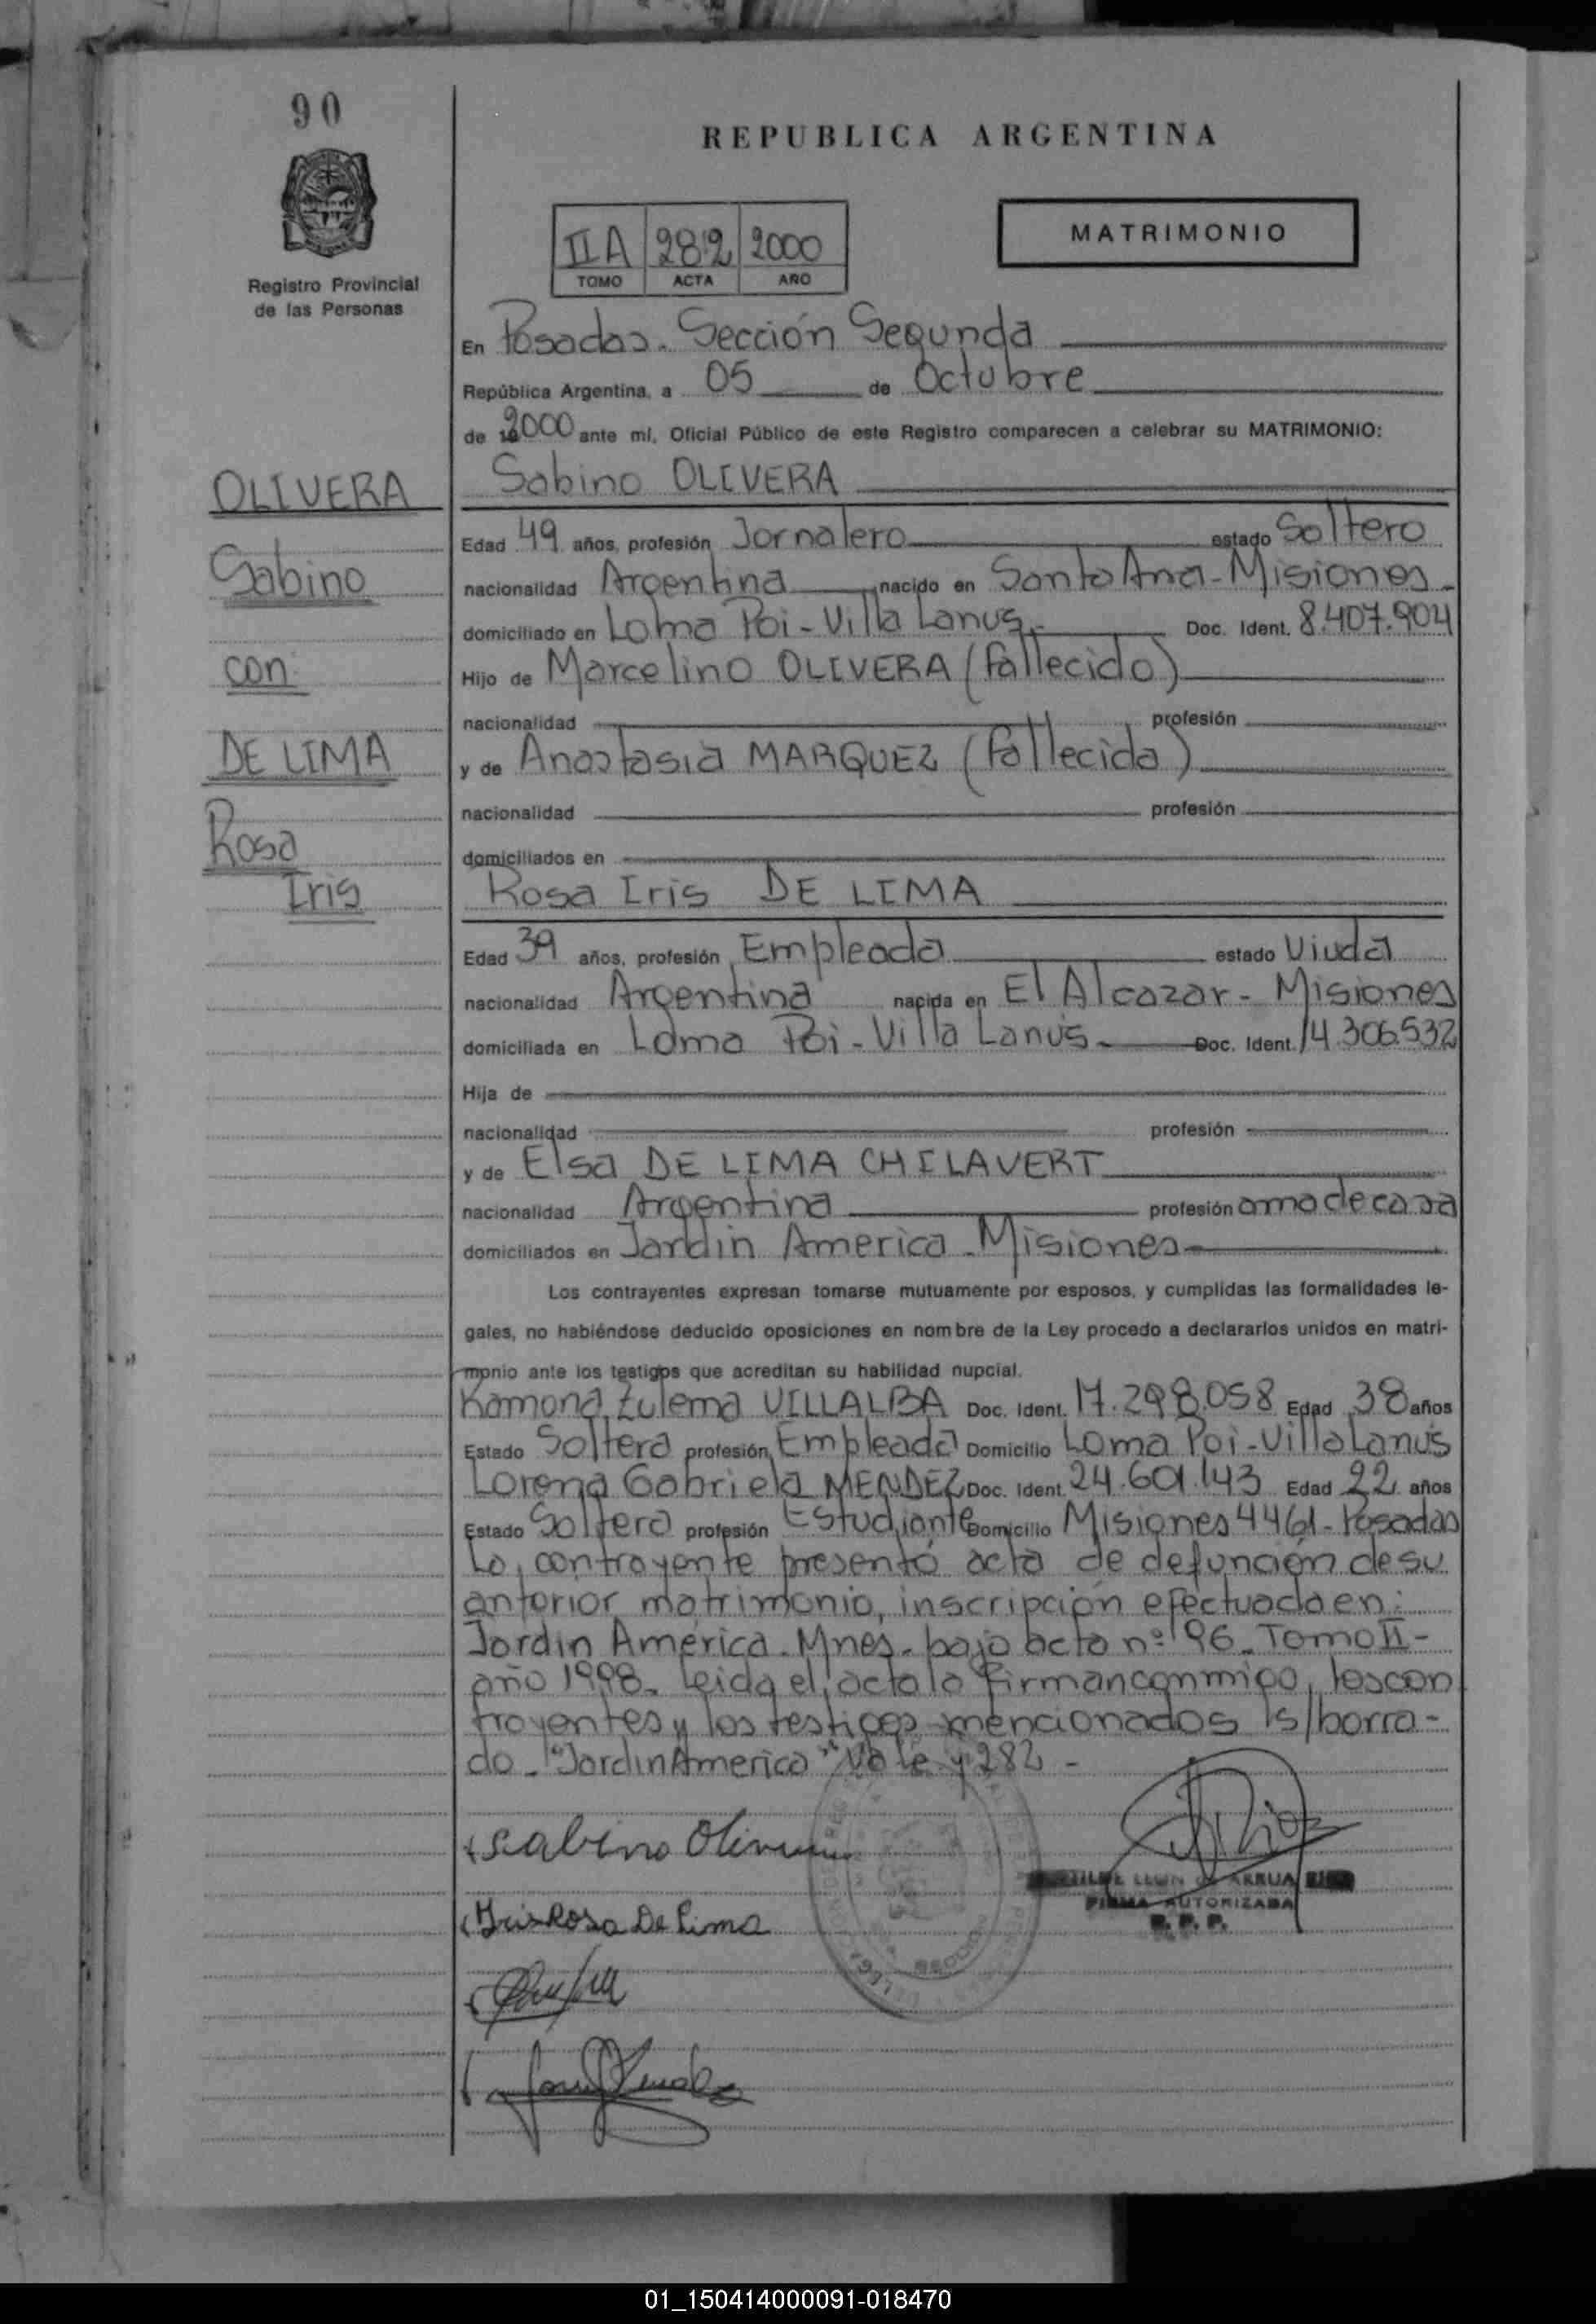 90
REPUBLICA ARGENTINA
Registro Provincial
de las Personas
IIA 282 2000
TOMO ACTA AÑO
MATRIMONIO
En Posadas. Sección Segunda
República Argentina, a 05 de Octubre
de 2000 ante mí, Oficial Público de este Registro comparecen a celebrar su MATRIMONIO:
OLIVERA
Sabino
con
DE LIMA
Rosa
Iris
Sabino OLIVERA
Edad 49 años, profesión Jornalero estado Soltero
nacionalidad Argentina nacido en Santa Ana - Misiones
domiciliado en Loma Poi - Villa Lanus. Doc. Ident. 8.407.904
Hijo de Marcelino OLIVERA (fallecido)
nacionalidad profesión
y de Anastasia MARQUEZ (fallecida)
nacionalidad profesión
domiciliados en
Rosa Iris DE LIMA
Edad 39 años, profesión Empleada estado Viuda
nacionalidad Argentina nacida en El Alcazar - Misiones
domiciliada en Loma Poi - Villa Lanús Doc. Ident. 14.306.532
Hija de
nacionalidad profesión
y de Elsa DE LIMA CHILAVERT
nacionalidad Argentina profesión ama de casa
domiciliados en Jardin America - Misiones
Los contrayentes expresan tomarse mutuamente por esposos, y cumplidas las formalidades le-
gales, no habiéndose deducido oposiciones en nombre de la Ley procedo a declararlos unidos en matri-
monio ante los testigos que acreditan su habilidad nupcial.
Ramona Zulema VILLALBA Doc. Ident. 17.298.058 Edad 38 años
Estado Soltera profesión Empleada Domicilio Loma Poi - Villa Lanús
Lorena Gabriela MENDEZ Doc. Ident. 24.601.143 Edad 22 años
Estado Soltera profesión Estudiante Domicilio Misiones 4461 - Posadas
La contrayente presentó acta de defunción de su
anterior matrimonio, inscripción efectuada en:
Jardin América - Mnes - bajo acta nº 96 - Tomo II -
año 1998. Leida el acta la firman conmigo, los con
trayentes y los testigos mencionados s/borra-
do - "Jardin America" Vale y 282 -
Sabino Olivera
Iris Rosa De Lima
LEON de ARRUA
FIRMA AUTORIZADA
R. P. P.
01_150414000091-018470